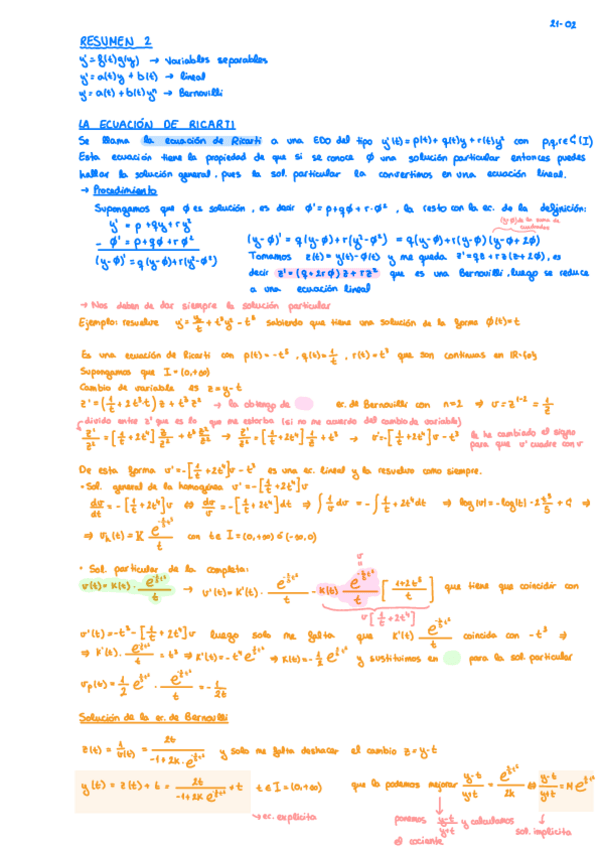 21-02
RESUMEN 2
y' = f(t)g(y) → Variables separables
y' = a(t)y + b(t) → lineal
y' = a(t) + b(t)yⁿ → Bernovilli
LA ECUACIÓN DE RICARTI
Se llama la ecuación de Ricarti a una EDO del tipo y'(t) = p(t) + q(t)y + r(t)y² con p,q,r ∈ C(I)
Esta ecuación tiene la propiedad de que si se conoce ∅ una solución particular entonces puedes
hallar la solución general, pues la sol. particular la convertimos en una ecuación lineal.
→ Procedimiento
Supongamos que ∅ es solución, es decir ∅' = p+q∅ + r·∅², la resto con la ec. de la definición:
y' = p + qy + ry²
- ∅' = p + q∅ + r∅²
(y-∅)' = q(y-∅) + r(y²-∅²)
(y-∅)' = q(y-∅) + r(y²-∅²) = q(y-∅) + r(y-∅)(y-∅+2∅)
Tomamos z(t) = y(t)-∅(t) y me queda z' = qz + rz(z+2∅), es
decir z' = (q+2r∅)z + rz² que es una Bernovilli, luego se reduce
a una ecuación lineal
→ Nos deben de dar siempre la solución particular
Ejemplo: resuelve y' = y/t + t³y² - t⁵ sabiendo que tiene una solución de la forma ∅(t)=t
Es una ecuación de Ricarti con p(t) = -t⁵, q(t) = 1/t, r(t) = t³ que son continuas en IR-{0}
Supongamos que I = (0,+∞)
Cambio de variable es z = y-t
z' = (1/t + 2t³·t)z + t³z² → la obtengo de ec. de Bernovilli con n=2 ⇒ v = z¹⁻² = 1/z
divido entre z² que es lo que me estorba (si no me acuerdo del cambio de variable)
z'/z² = [1/t + 2t⁴] z/z² + t³ z²/z² → z'/z² = [1/t + 2t⁴] 1/z + t³ → v' = -[1/t + 2t⁴]v - t³
le he cambiado el signo
para que v' cuadre con v
De esta forma v' = -[1/t + 2t⁴]v - t³ es una ec. lineal y la resuelvo como siempre.
• Sol. general de la homogénea v' = -[1/t + 2t⁴]v
dv/dt = -[1/t + 2t⁴]v ⇔ dv/v = -[1/t + 2t⁴]dt ⇒ ∫ 1/v dv = -∫ 1/t + 2t⁴ dt ⇒ log|v| = -log|t| - 2t⁵/5 + C ⇒
con t ∈ I = (0,+∞) ó (-∞,0)
• Sol. particular de la completa:
que tiene que coincidir con
v
v[1/t + 2t⁴]
v'(t) = -t³ - [1/t + 2t⁴]v luego solo me falta que
coincida con -t³ ⇒
y sustituimos en para la sol. particular
Solución de la ec. de Bernovilli
y solo me falta deshacer el cambio z = y-t
t ∈ I = (0,+∞) que la podemos mejorar
→ ec. explícita
ponemos y-t/y+t y calculamos
el cociente
sol. implícita